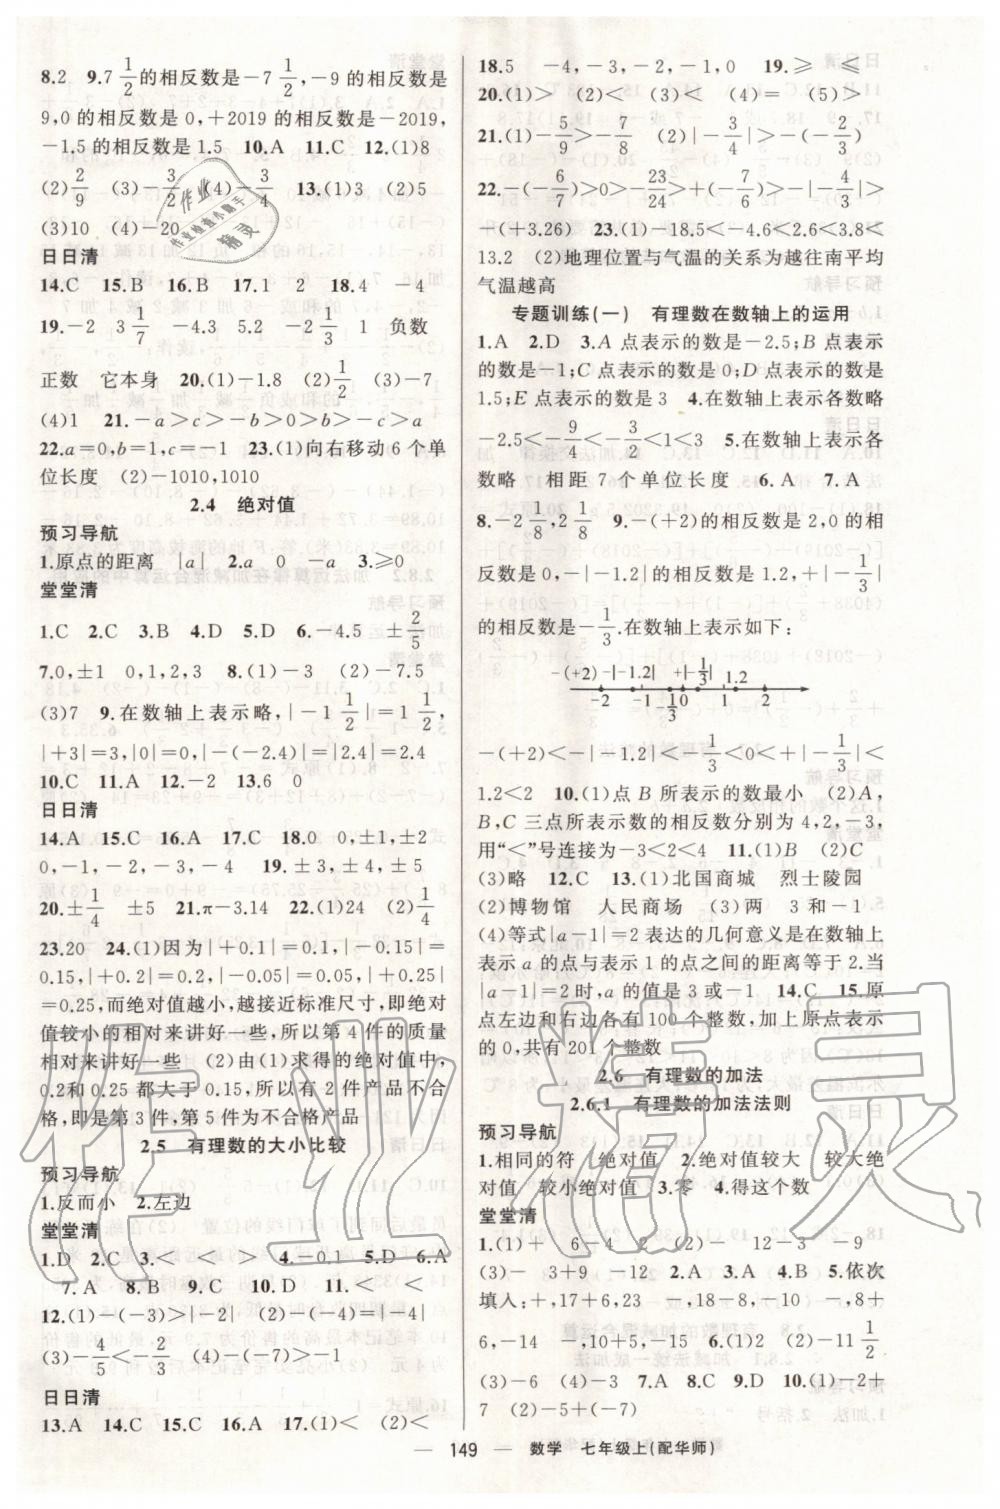 8.2　9.7 1/2 的相反数是-7 1/2,-9的相反数是
9,0的相反数是0,+2019的相反数是-2019,
-1.5的相反数是1.5　10.A　11.C　12.(1)8
(2) 2/9　(3)-3/2　(4)-3/4　13.(1)3　(2)5
(3)10　(4)-20
日日清
14.C　15.B　16.B　17.1　2　18.4　-4
19.-2　3 1/7　-4.3　5.2　-2 1/3　1　负数
正数　它本身　20.(1)-1.8　(2) 1/2　(3)-7
(4)1　21.-a>c>-b>0>b>-c>a
22.a=0,b=1,c=-1　23.(1)向右移动6个单
位长度　(2)-1010,1010
2.4　绝对值
预习导航
1.原点的距离　|a|　2.a　0　-a　3.≥0
堂堂清
1.C　2.C　3.B　4.D　5.D　6.-4.5　± 2/5
7.0,±1　0,1,2,3　8.(1)-3　(2)-7.5
(3)7　9.在数轴上表示略,|-1 1/2|=1 1/2,
|+3|=3,|0|=0,|-(-2.4)|=|2.4|=2.4
10.C　11.A　12.-2　13.6　0
日日清
14.A　15.C　16.A　17.C　18.0　0,±1,±2
0,-1,-2,-3,-4　19.±3,±4,±5
20.± 1/4　±5　21.π-3.14　22.(1)24　(2) 1/4
23.20　24.(1)因为|+0.1|=0.1,|-0.15|=
0.15,|+0.2|=0.2,|-0.05|=0.05,|+0.25|
=0.25,而绝对值越小,越接近标准尺寸,即绝对
值较小的相对来讲好一些,所以第4件的质量
相对来讲好一些　(2)由(1)求得的绝对值中,
0.2和0.25都大于0.15,所以有2件产品不合
格,即是第3件,第5件为不合格产品
2.5　有理数的大小比较
预习导航
1.反而小　2.左边
堂堂清
1.D　2.C　3.<　<　>　4.-0.1　5.D　6.A
7.A　8.B　9.C　10.D　11.<　>　<
12.(1)-(-3)>|-2|　(2)-(-4)=|-4|
(3)-4/5<-2/3　(4)-(-6)>-1
日日清
13.A　14.C　15.C　16.A　17.(1)<　(2)<
18.5　-4,-3,-2,-1,0　19.≥　≤
20.(1)>　(2)<　(3)<　(4)=　(5)>
21.(1)-5/9>-5/8　(2)|-7/8|>-(-2/3)
22.-(-6/7)>0>-23/24>+(-7/6)>
-(+3.26)　23.(1)-18.5<-4.6<2.6<3.8<
13.2　(2)地理位置与气温的关系为越往南平均
气温越高
专题训练(一)　有理数在数轴上的运用
1.A　2.D　3.A点表示的数是-2.5;B点表示
的数是-1;C点表示的数是0;D点表示的数是
1.5;E点表示的数是3　4.在数轴上表示各数略
-2.5<-9/4<-3/2<1<3　5.在数轴上表示各
数略　相距7个单位长度　6.A　7.A
8.-2 1/8,2 1/8　9.-(+2)的相反数是2,0的相
反数是0,-|-1.2|的相反数是1.2,+|-1/3|
的相反数是-1/3.在数轴上表示如下:
-(+2)　-|-1.2|　+|-1/3|　1.2
-2　-1　-1/3　0　1　2
-(+2)<-|-1.2|<-1/3<0<+|-1/3|<
1.2<2　10.(1)点B所表示的数最小　(2)A,
B,C三点所表示的数的相反数分别为4,2,-3,
用“<”号连接为-3<2<4　11.(1)B　(2)C
(3)略　12.C　13.(1)北国商城　烈士陵园
(2)博物馆　人民商场　(3)两　3和-1
(4)等式|a-1|=2表达的几何意义是在数轴上
表示a的点与表示1的点之间的距离等于2.当
|a-1|=2时,a的值是3或-1　14.C　15.原
点左边和右边各有100个整数,加上原点表示
的0,共有201个整数
2.6　有理数的加法
2.6.1　有理数的加法法则
预习导航
1.相同的符　绝对值　2.绝对值较大　较大绝
对值　较小绝对值　3.零　4.得这个数
堂堂清
1.(1)+　6-4　2　(2)-　12-3　-9
(3)-　3+9　-12　2.A　3.A　4.B　5.依次
填入:+,17+6,23　-,18-8,-10　-,8+
6,-14　-,10+5,-15　6.(1)2　(2)-11 1/2
(3)-6　(4)-3　7.A　8.C　9.D　10.(1)-2+
7　(2)-5+(-7)
149　数学　七年级上(配华师)
作业
作业检查小助手
精灵
作业精灵